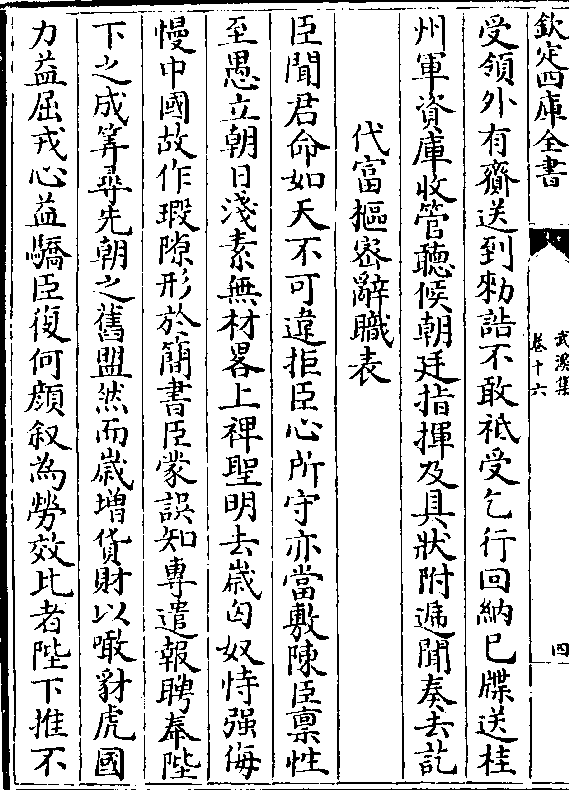 欽定四庫全書
武溪集
卷十六
四
受領外有齎送到勑誥不敢祗受乞行回納已牒送桂
州軍資庫收管聽候朝廷指揮及具狀附遞聞奏去訖
代富樞密辭職表
臣聞君命如天不可違拒臣心所守亦當敷陳臣稟性
至愚立朝日淺素無材畧上裨聖明去歲匈奴恃强侮
慢中國故作瑕隙形於簡書臣蒙誤知專遣報聘奉陛
下之成筭尋先朝之舊盟然而歲增貨財以啖豺虎國
力益屈戎心益驕臣復何顔叙為勞效比者陛下推不